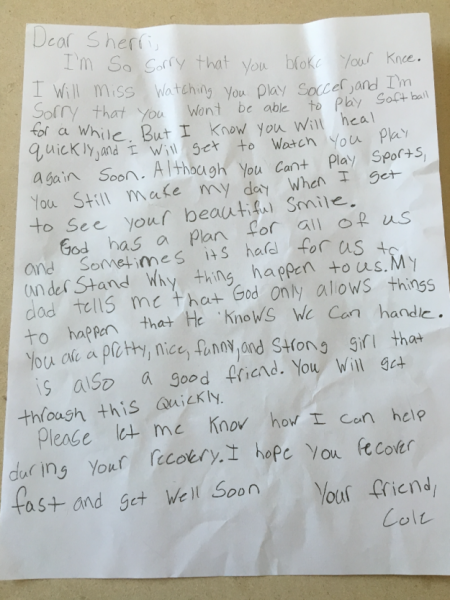 Dear Sherri,
I'm So Sorry that you broke your knee.
I Will miss Watching you Play Soccer, and I'm
Sorry that you Wont be able to Play Softball
for a While. But I know you Will heal
quickly, and I Will get to Watch you Play
again Soon. Although you Cant Play Sports,
you Still make my day When I get
to See your beautiful Smile.
God has a Plan for all of us
and Sometimes its hard for us to
underStand Why thing happen to us. My
dad tells me that God only allows things
to happen that He KnowS We Can handle.
You are a pretty, nice, funny, and Strong girl that
is also a good friend. You Will get
through this Quickly.
Please let me Know how I Can help
during Your recovery. I hope you recover
fast and get Well Soon Your friend,
Cole